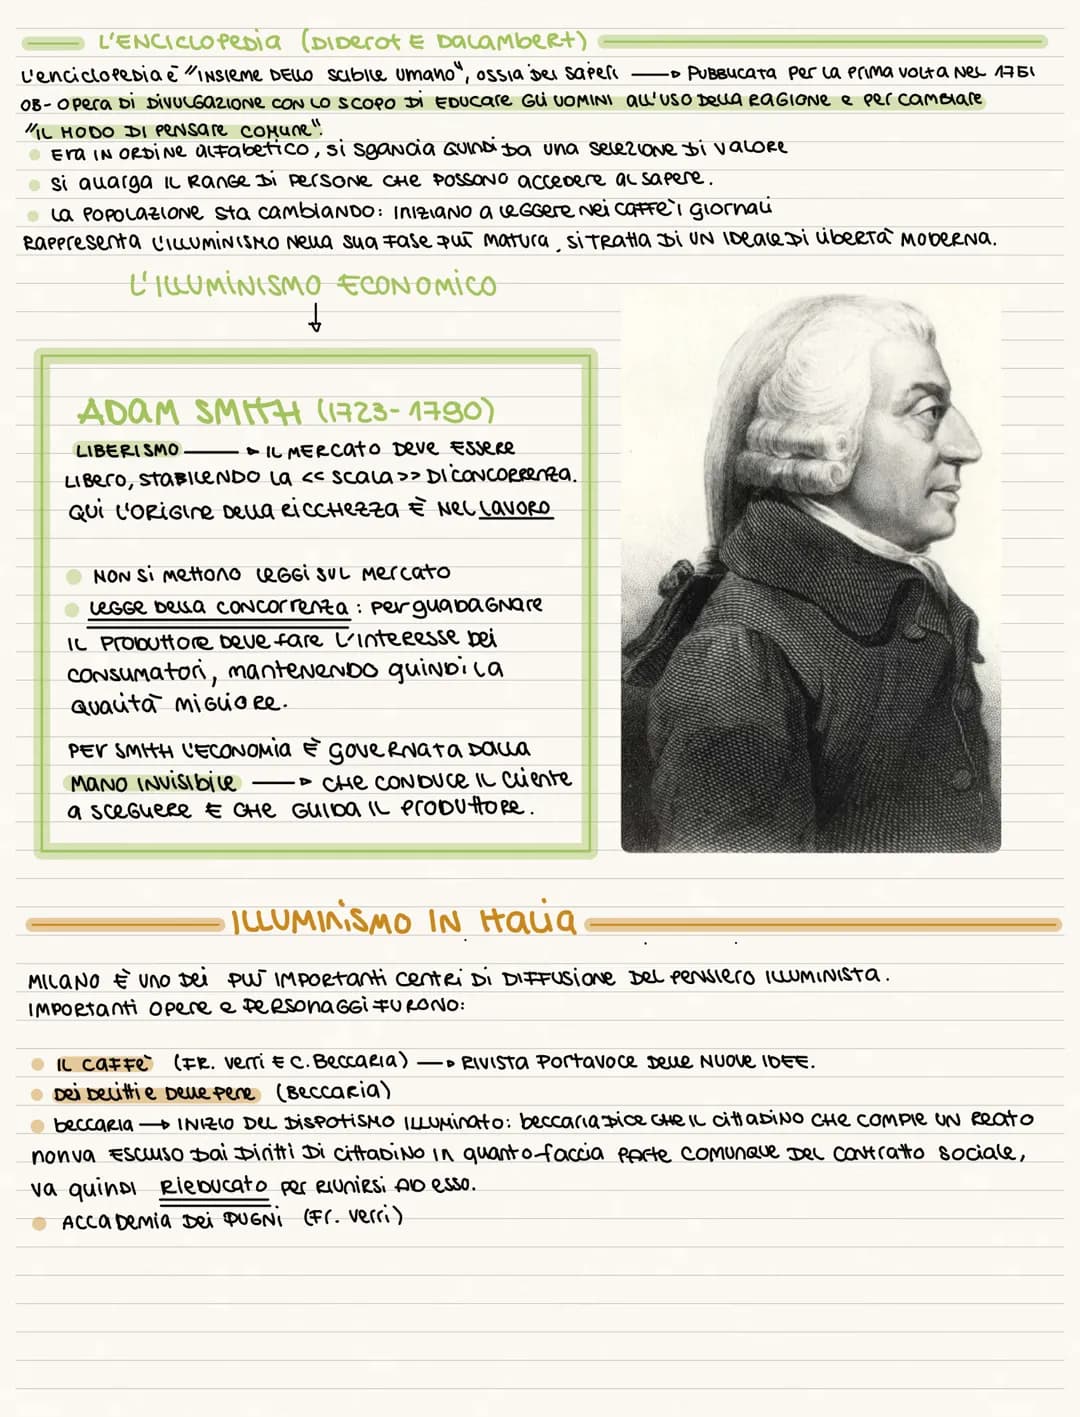 L'ENCICLOPEDIA (DIDEROT E DALAMBERT)
L'enciclopedia è "INSIEME DELLO SCIBILE UMANO", OSSIA DEI SAPERI → PUBBLICATA PER LA PRIMA VOLTA NEL 1751
OB- OPERA DI DIVULGAZIONE CON LO SCOPO DI EDUCARE GLI UOMINI ALL'USO DELLA RAGIONE E PER CAMBIARE
"IL MODO DI PENSARE COMUNE".
• ERA IN ORDINE ALFABETICO, SI SGANCIA QUINDI DA UNA SELEZIONE DI VALORE
• SI ALLARGA IL RANGE DI PERSONE CHE POSSONO ACCEDERE AL SAPERE.
• LA POPOLAZIONE STA CAMBIANDO: INIZIANO A LEGGERE NEI CAFFE' I GIORNALI
RAPPRESENTA L'ILLUMINISMO NELLA SUA FASE PIÙ MATURA, SI TRATTA DI UN IDEALE DI LIBERTÀ MODERNA.
L'ILLUMINISMO ECONOMICO
↓
ADAM SMITH (1723-1790)
LIBERISMO → IL MERCATO DEVE ESSERE
LIBERO, STABILENDO LA << SCALA >> DI CONCORRENZA.
QUI L'ORIGINE DELLA RICCHEZZA È NEL LAVORO
• NON SI METTONO LEGGI SUL MERCATO
• LEGGE DELLA CONCORRENZA: PER GUADAGNARE
IL PRODUTTORE DEVE FARE L'INTERESSE DEI
CONSUMATORI, MANTENENDO QUINDI LA
QUALITÀ MIGLIORE.
PER SMITH L'ECONOMIA È GOVERNATA DALLA
MANO INVISIBILE → CHE CONDUCE IL CLIENTE
A SCEGLIERE E CHE GUIDA IL PRODUTTORE.
ILLUMINISMO IN ITALIA
MILANO È UNO DEI PIÙ IMPORTANTI CENTRI DI DIFFUSIONE DEL PENSIERO ILLUMINISTA.
IMPORTANTI OPERE E PERSONAGGI FURONO:
• IL CAFFE' (FR. VERRI E C. BECCARIA) → RIVISTA PORTAVOCE DELLE NUOVE IDEE.
• DEI DELITTI E DELLE PENE (BECCARIA)
• BECCARIA → INIZIO DEL DISPOTISMO ILLUMINATO: BECCARIA DICE CHE IL CITTADINO CHE COMPIE UN REATO
NON VA ESCLUSO DAI DIRITTI DI CITTADINO IN QUANTO FACCIA PARTE COMUNQUE DEL CONTRATTO SOCIALE,
VA QUINDI RIEDUCATO PER RIUNIRSI AD ESSO.
• ACCADEMIA DEI PUGNI (FR. VERRI)